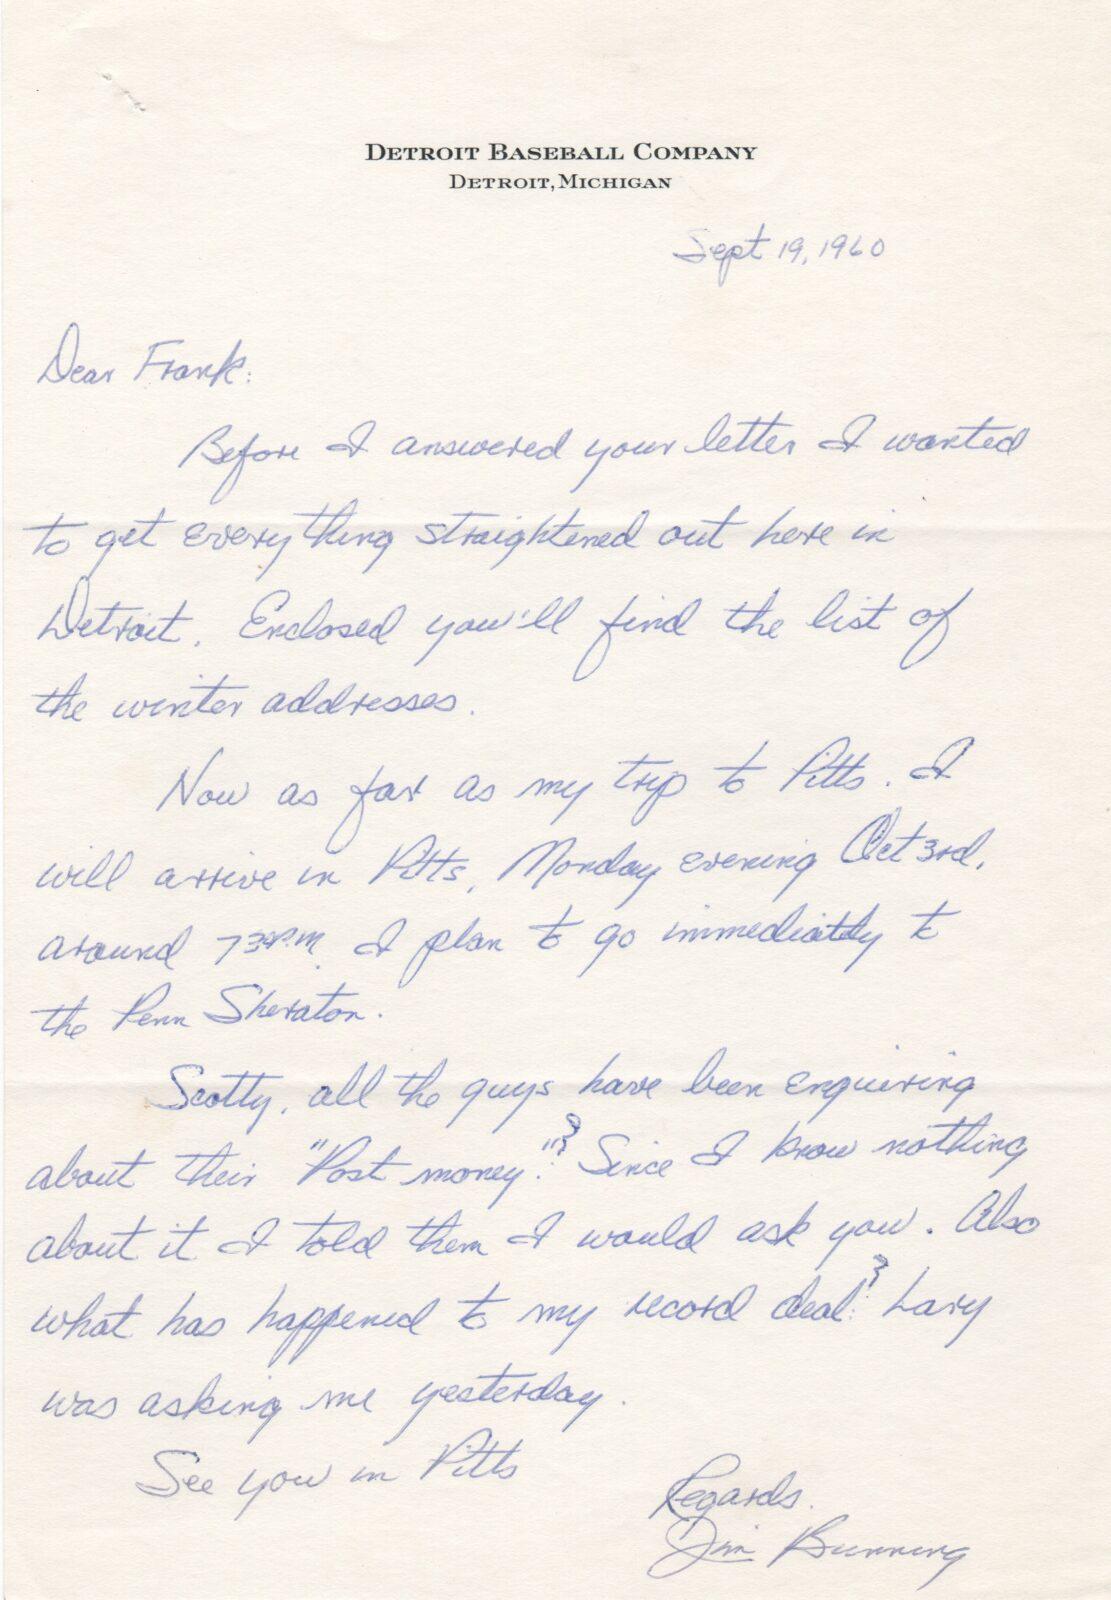 DETROIT BASEBALL COMPANY
DETROIT, MICHIGAN
Sept 19, 1960
Dear Frank:
Before I answered your letter I wanted
to get everything straightened out here in
Detroit. Enclosed you'll find the list of
the winter addresses.
Now as far as my trip to Pitts. I
will arrive in Pitts, Monday evening Oct 3rd.
around 7:30 P.M. I plan to go immediately to
the Penn Sheraton.
Scotty, all the guys have been enquiring
about their "Post money"? Since I know nothing
about it I told them I would ask you. Also
what has happened to my record deal? Lary
was asking me yesterday.
See you in Pitts
Regards.
Jim Bunning